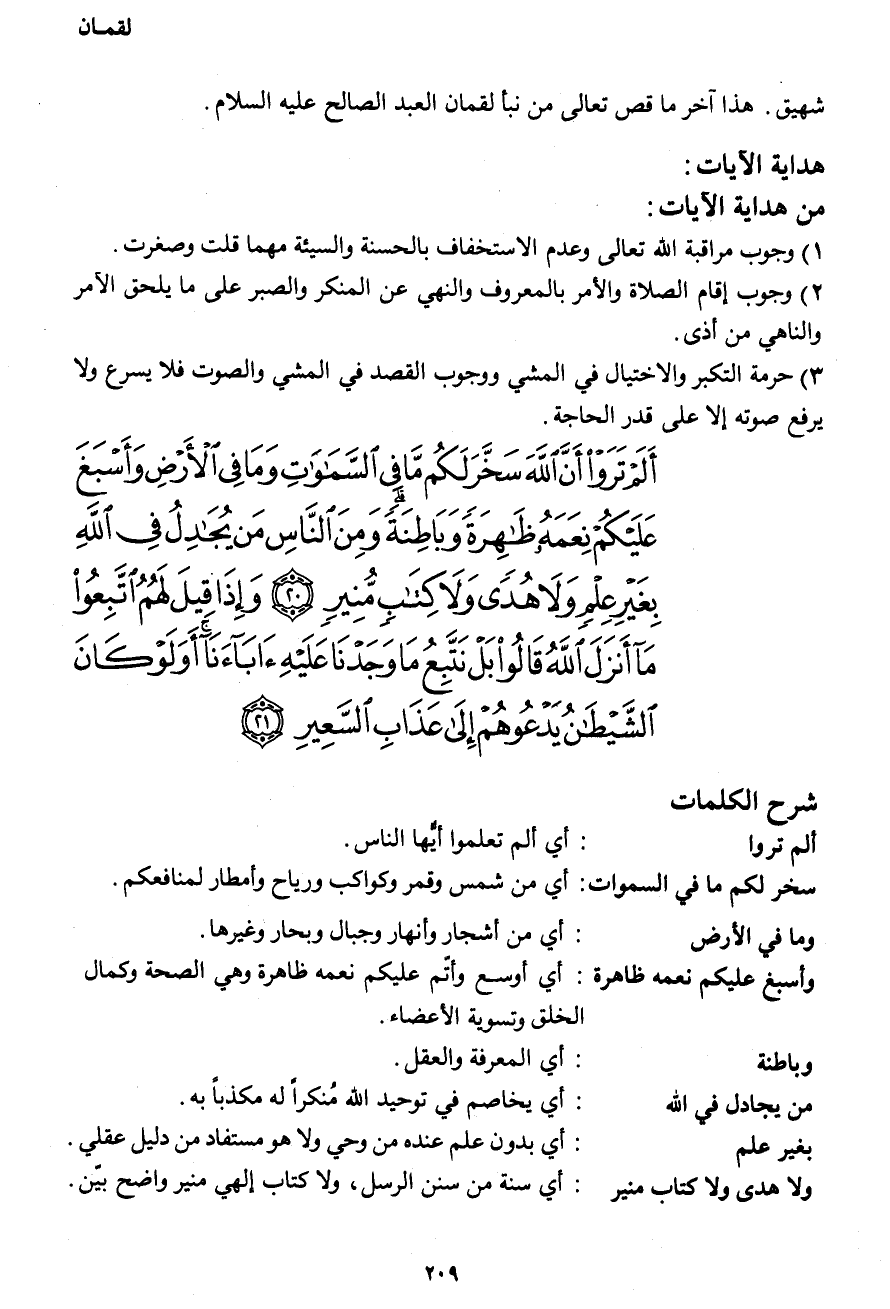 لقمــان
شهيق . هذا آخر ما قص تعالى من نبأ لقمان العبد الصالح عليه السلام .
هداية الآيات :
من هداية الآيات :
١) وجوب مراقبة الله تعالى وعدم الاستخفاف بالحسنة والسيئة مهما قلت وصغرت .
٢) وجوب إقام الصلاة والأمر بالمعروف والنهي عن المنكر والصبر على ما يلحق الآمر
والناهي من أذى .
٣) حرمة التكبر والاختيال في المشي ووجوب القصد في المشي والصوت فلا يسرع ولا
يرفع صوته إلا على قدر الحاجة .
أَلَمْ تَرَوْا۟ أَنَّ ٱللَّهَ سَخَّرَ لَكُم مَّا فِي ٱلسَّمَٰوَٰتِ وَمَا فِي ٱلْأَرْضِ وَأَسْبَغَ
عَلَيْكُمْ نِعَمَهُۥ ظَٰهِرَةً وَبَاطِنَةً ۗ وَمِنَ ٱلنَّاسِ مَن يُجَٰدِلُ فِي ٱللَّهِ
بِغَيْرِ عِلْمٍ وَلَا هُدًى وَلَا كِتَٰبٍ مُّنِيرٍ ٢٠ وَإِذَا قِيلَ لَهُمُ ٱتَّبِعُوا۟
مَآ أَنزَلَ ٱللَّهُ قَالُوا۟ بَلْ نَتَّبِعُ مَا وَجَدْنَا عَلَيْهِ ءَابَآءَنَآ ۚ أَوَلَوْ كَانَ
ٱلشَّيْطَٰنُ يَدْعُوهُمْ إِلَىٰ عَذَابِ ٱلسَّعِيرِ ٢١
شرح الكلمات
ألم تروا : أي ألم تعلموا أيُّها الناس .
سخر لكم ما في السموات : أي من شمس وقمر وكواكب ورياح وأمطار لمنافعكم .
وما في الأرض : أي من أشجار وأنهار وجبال وبحار وغيرها .
وأسبغ عليكم نعمه ظاهرة : أي أوسع وأتّم عليكم نعمه ظاهرة وهي الصحة وكمال
الخلق وتسوية الأعضاء .
وباطنة : أي المعرفة والعقل .
من يجادل في الله : أي يخاصم في توحيد الله مُنكراً له مكذباً به .
بغير علم : أي بدون علم عنده من وحي ولا هو مستفاد من دليل عقلي .
ولا هدى ولا كتاب منير : أي سنة من سنن الرسل، ولا كتاب إلهي منير واضح بيّن .
٢٠٩